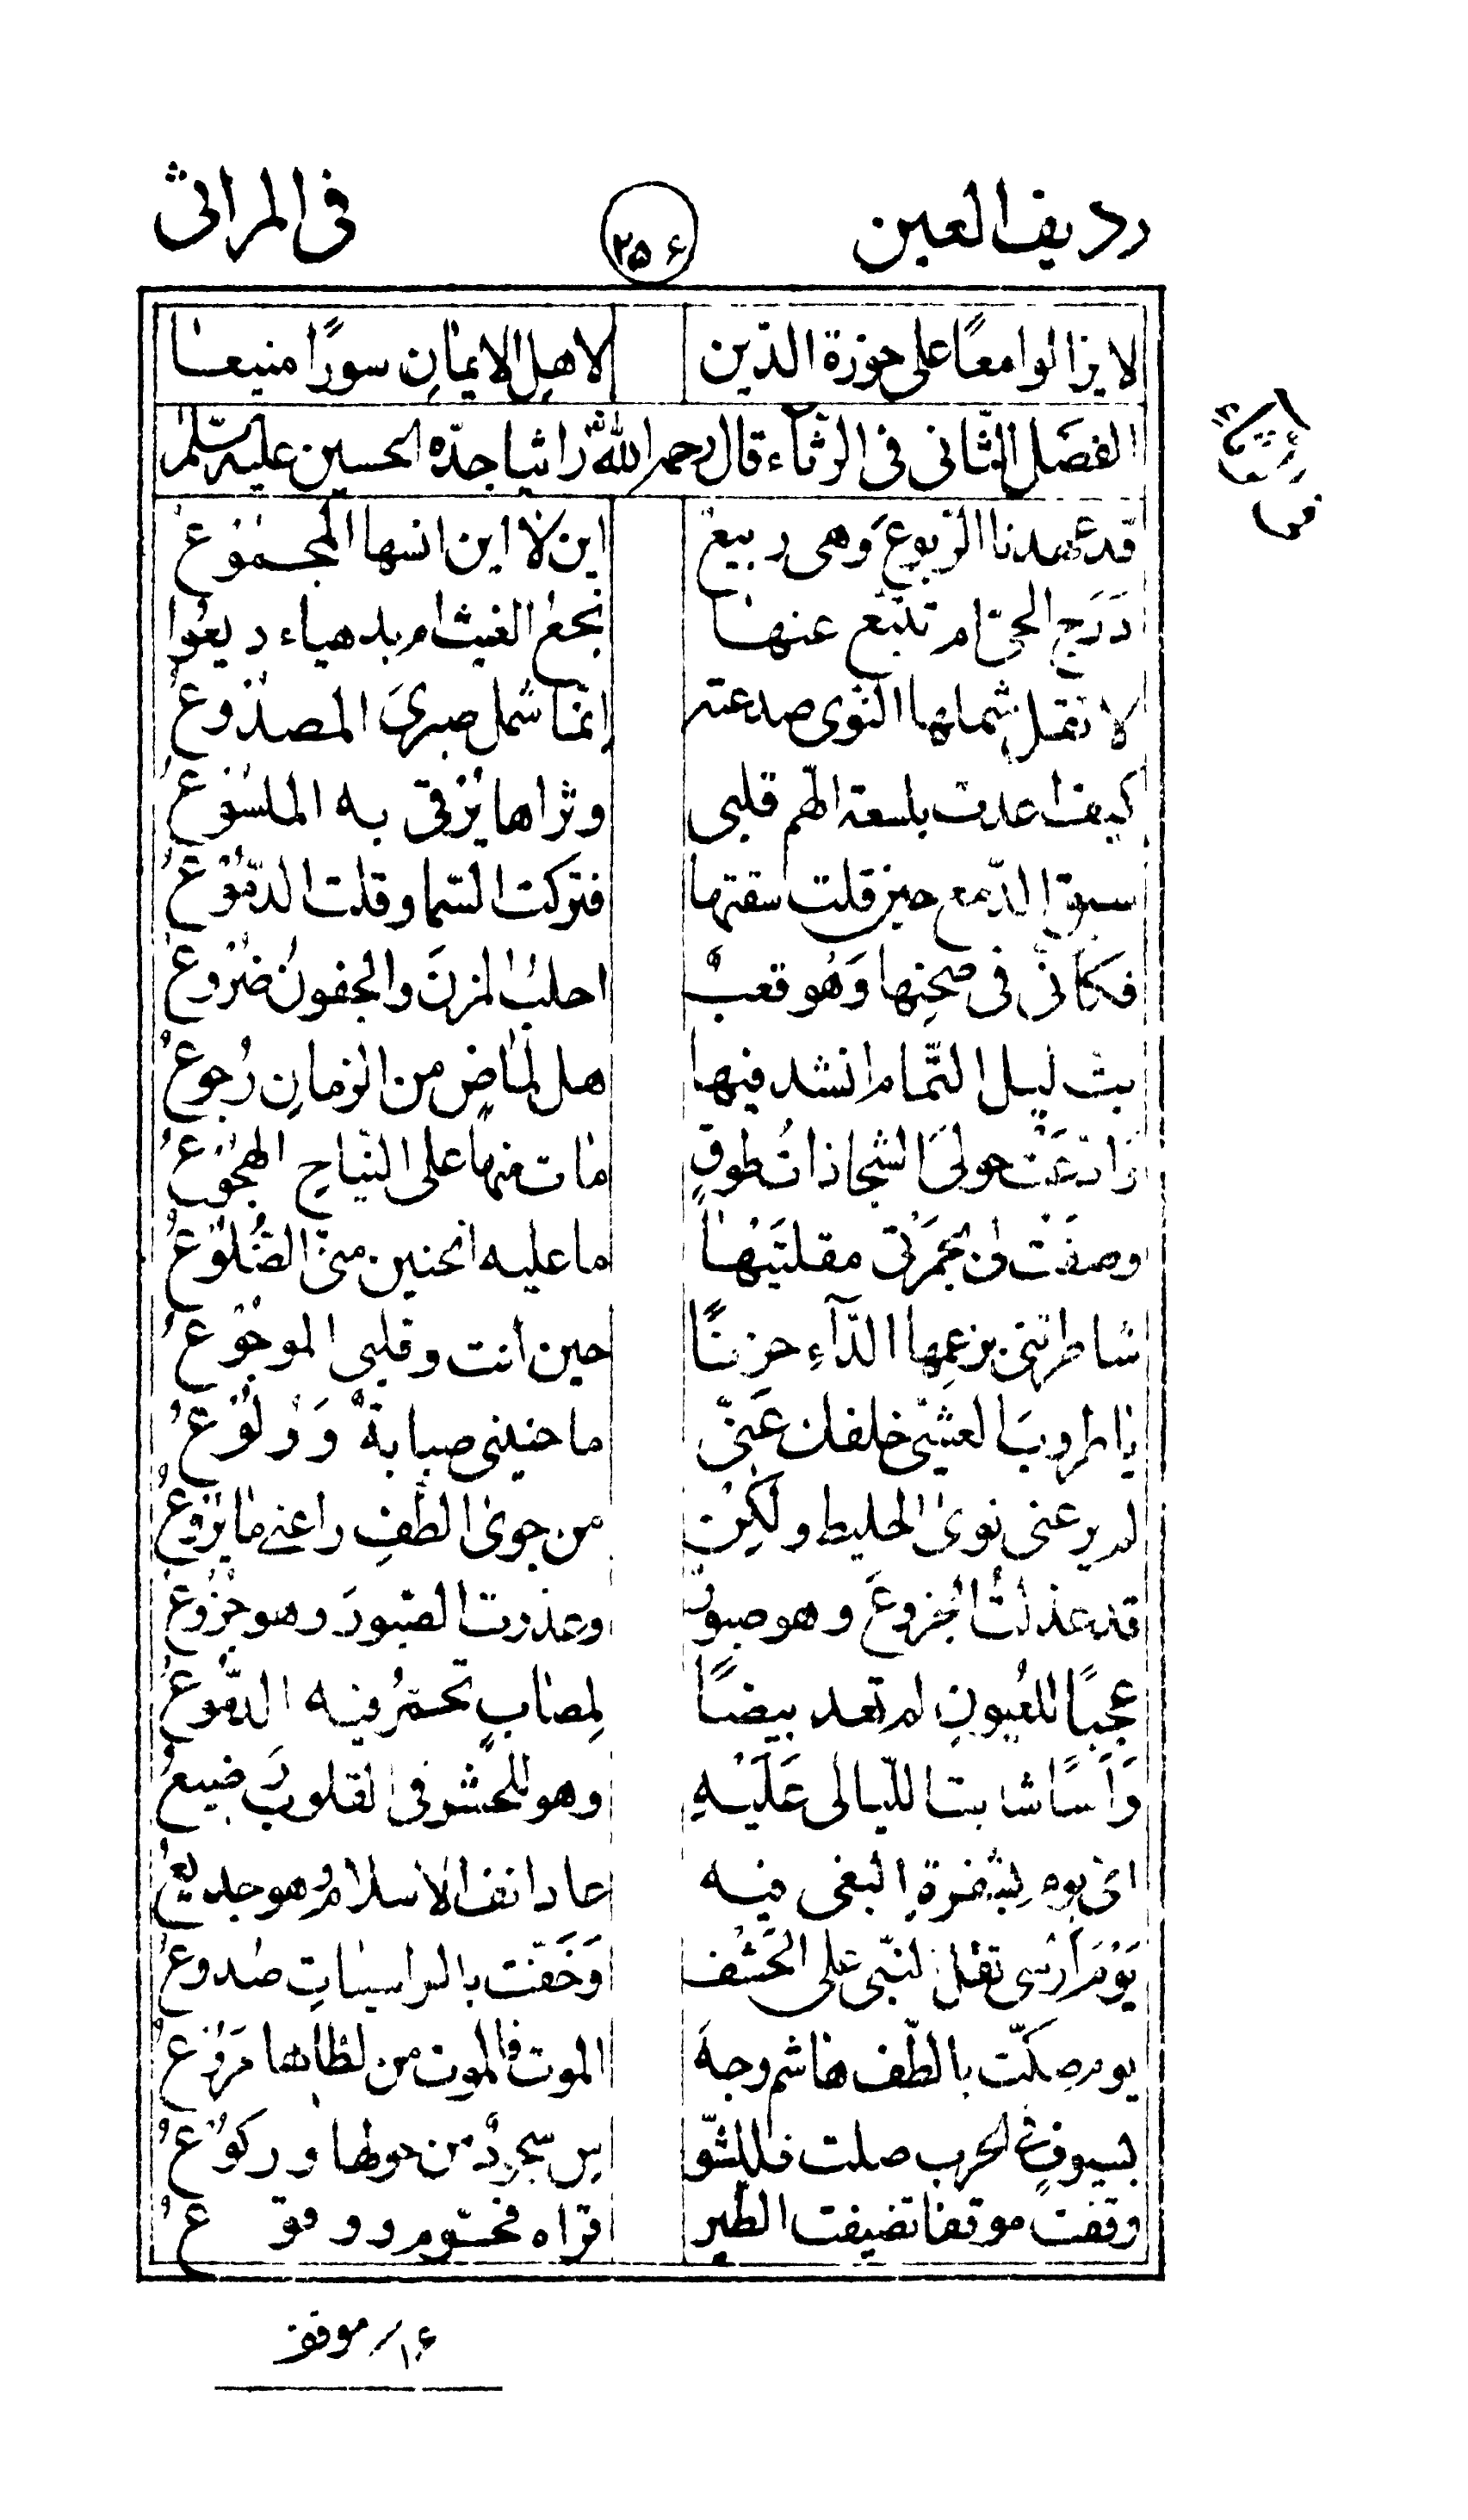 رديف العين ٢٥۶ فى المراثى
لا يزالوا معًا على حوزة الدّين لاهل الايمانِ سورًا منيعا
الفصل الثّانى فى الرّثآء قال رحمه الله راثيا جدّه الحسين عليه السّلام
قد عهدنا الرّبوعَ وهى ربيع اين لا اين انسها المجموعُ
دَرَج الحىّ ام تتبّع عنها نجع الغيث ام بدهياء ريعوا
لا تقل شملها النّوى صدعته انّما شمل صبرىَ المصدُوعُ
كيف اعدت بلسعة الهمّ قلبى وثراها يُرقى به الملسُوعُ
سبق الدّمع حين قلت سقتها فتركت السّما وقلت الدّمُوعُ
فكأنّى فى صحنِها وَهُو قعبٌ احلبُ المزنَ والجفونُ ضُرُوعُ
بتّ ليل التّمام انشد فيها هل لماضٍ من الزمانِ رُجوعُ
وَادّعَتْ حولىَ الشجا ذاتُ طوقٍ مات منها على النّياحِ الهجُوعُ
وصفَت لى بجمرَتى مقلتَيْها ما عليه انحنين منّى الضُّلُوعُ
شاطرتنى بزعمِها الدّآءِ حزنًا حين انّت وقلبى الموجُوعُ
يا طروبَ العشىّ خلفك عَنّى ما حنينى صبابةٌ وَوُلُوعُ
لم يرعنى نوىٰ الخليط ولكِن من جوىٰ الطّفِ راعنى ما يَرُوعُ
قد عذلتُ الجزوعَ وهو صبورٌ وعذرت الصّبورَ وهو جزُوعُ
عجبًا للعُيونِ لم تعد بيضًا لِمصابٍ تحمرّ فيه الدّمُوعُ
وَاَسًا شابت اللّيالى عَلَيْهِ وهو للحشر فى القلوب رَضيعُ
اىّ يوم بشفرةِ البغى فيه عاد انف الاسلام وهو جديعُ
يَوْمَ ارسى ثقل النّبى على الحَتْف وَخَفّت بالراسياتِ صُدوعُ
يوم صكّت بالطّف هاشم وجهَ الموت فالموت من لظاها مَرُوعُ
بسيوفٍ فى الحرب صلت فللشّو سِ سجودٌ من حولها وركوُعُ
وقفت موقفا تضيفت الطّير قراه فحوّم ووقوعُ
١۶/ موقف